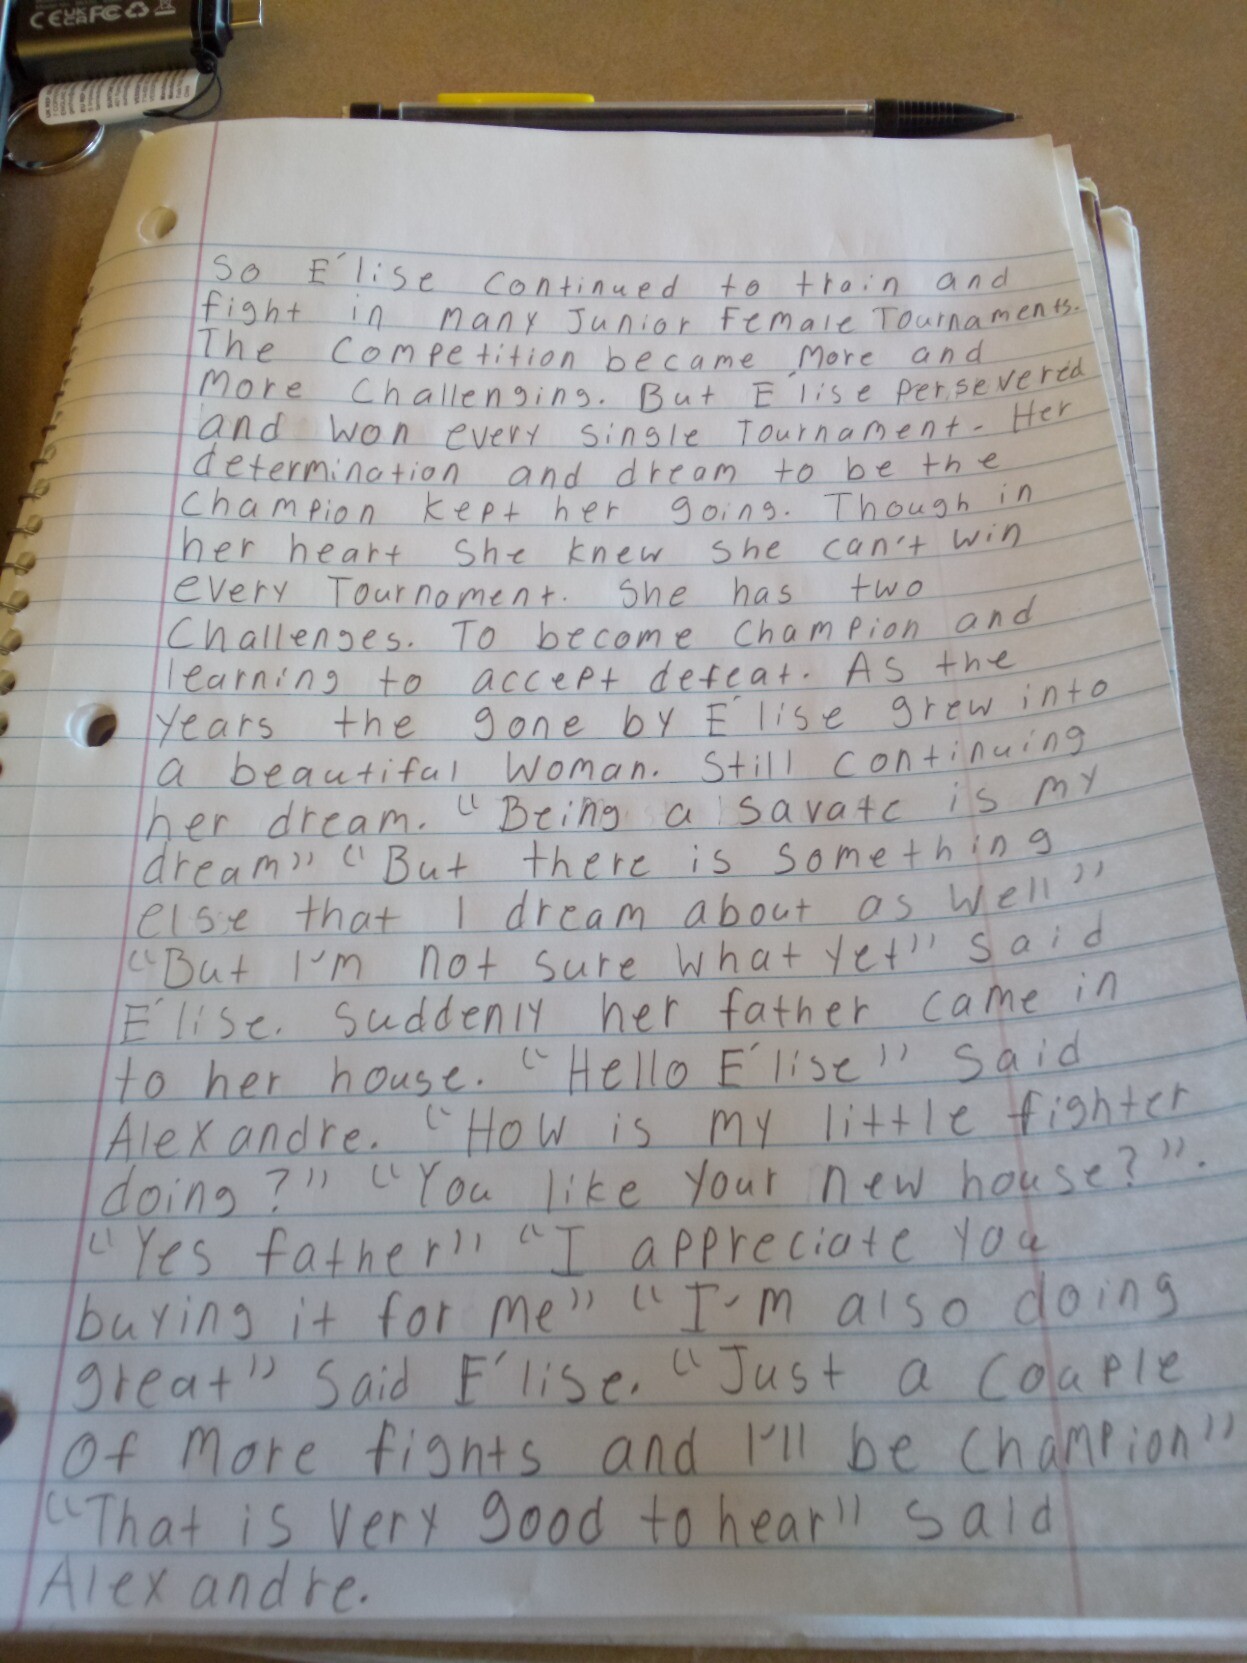 CE UKCA FC
So E'lise continued to train and
fight in many Junior Female Tournaments.
The competition became more and
more challenging. But E'lise persevered
and won every single Tournament. Her
determination and dream to be the
champion kept her going. Though in
her heart she knew she can't win
every Tournament. She has two
challenges. To become champion and
learning to accept defeat. As the
years the gone by E'lise grew into
a beautiful woman. Still continuing
her dream. "Being a savate is my
dream" "But there is something
else that I dream about as well"
"But I'm not sure what yet" said
E'lise. Suddenly her father came in
to her house. "Hello E'lise" said
Alexandre. "How is my little fighter
doing?" "You like your new house?".
"Yes father" "I appreciate you
buying it for me" "I'm also doing
great" said E'lise. "Just a couple
of more fights and I'll be champion"
"That is very good to hear" said
Alexandre.